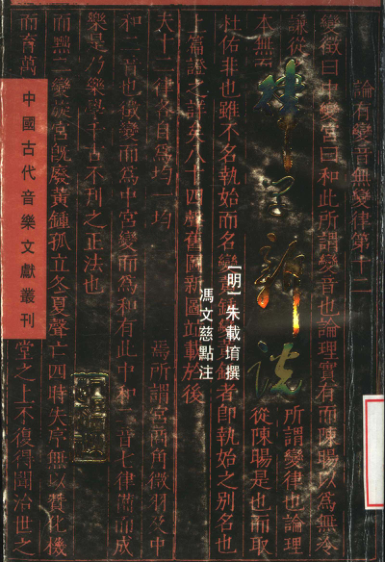 論有變音無變律第十二
變徵曰中變宮曰和此所謂變音也論理實有而陳暘以為無
所謂變律也論理
本無
從陳暘是也而取
律學新說
[明]朱載堉撰
馮文慈點注
杜佑非也雖不名執始而名變
者即執始之別名也
上篇證之詳矣八十四聲舊圖新圖並載於後
夫十二律各自為均一均
為所謂宮商角徵羽及中
和二音也徵變而為中宮變而為和有此中和二音七律備而成
樂是乃樂學千古不刊之正法也
二變旋宮既廢黃鍾孤立冬夏聲亡四時失序無以贊化機
而育萬
堂之上不復得聞治世之
中國古代音樂文獻叢刊